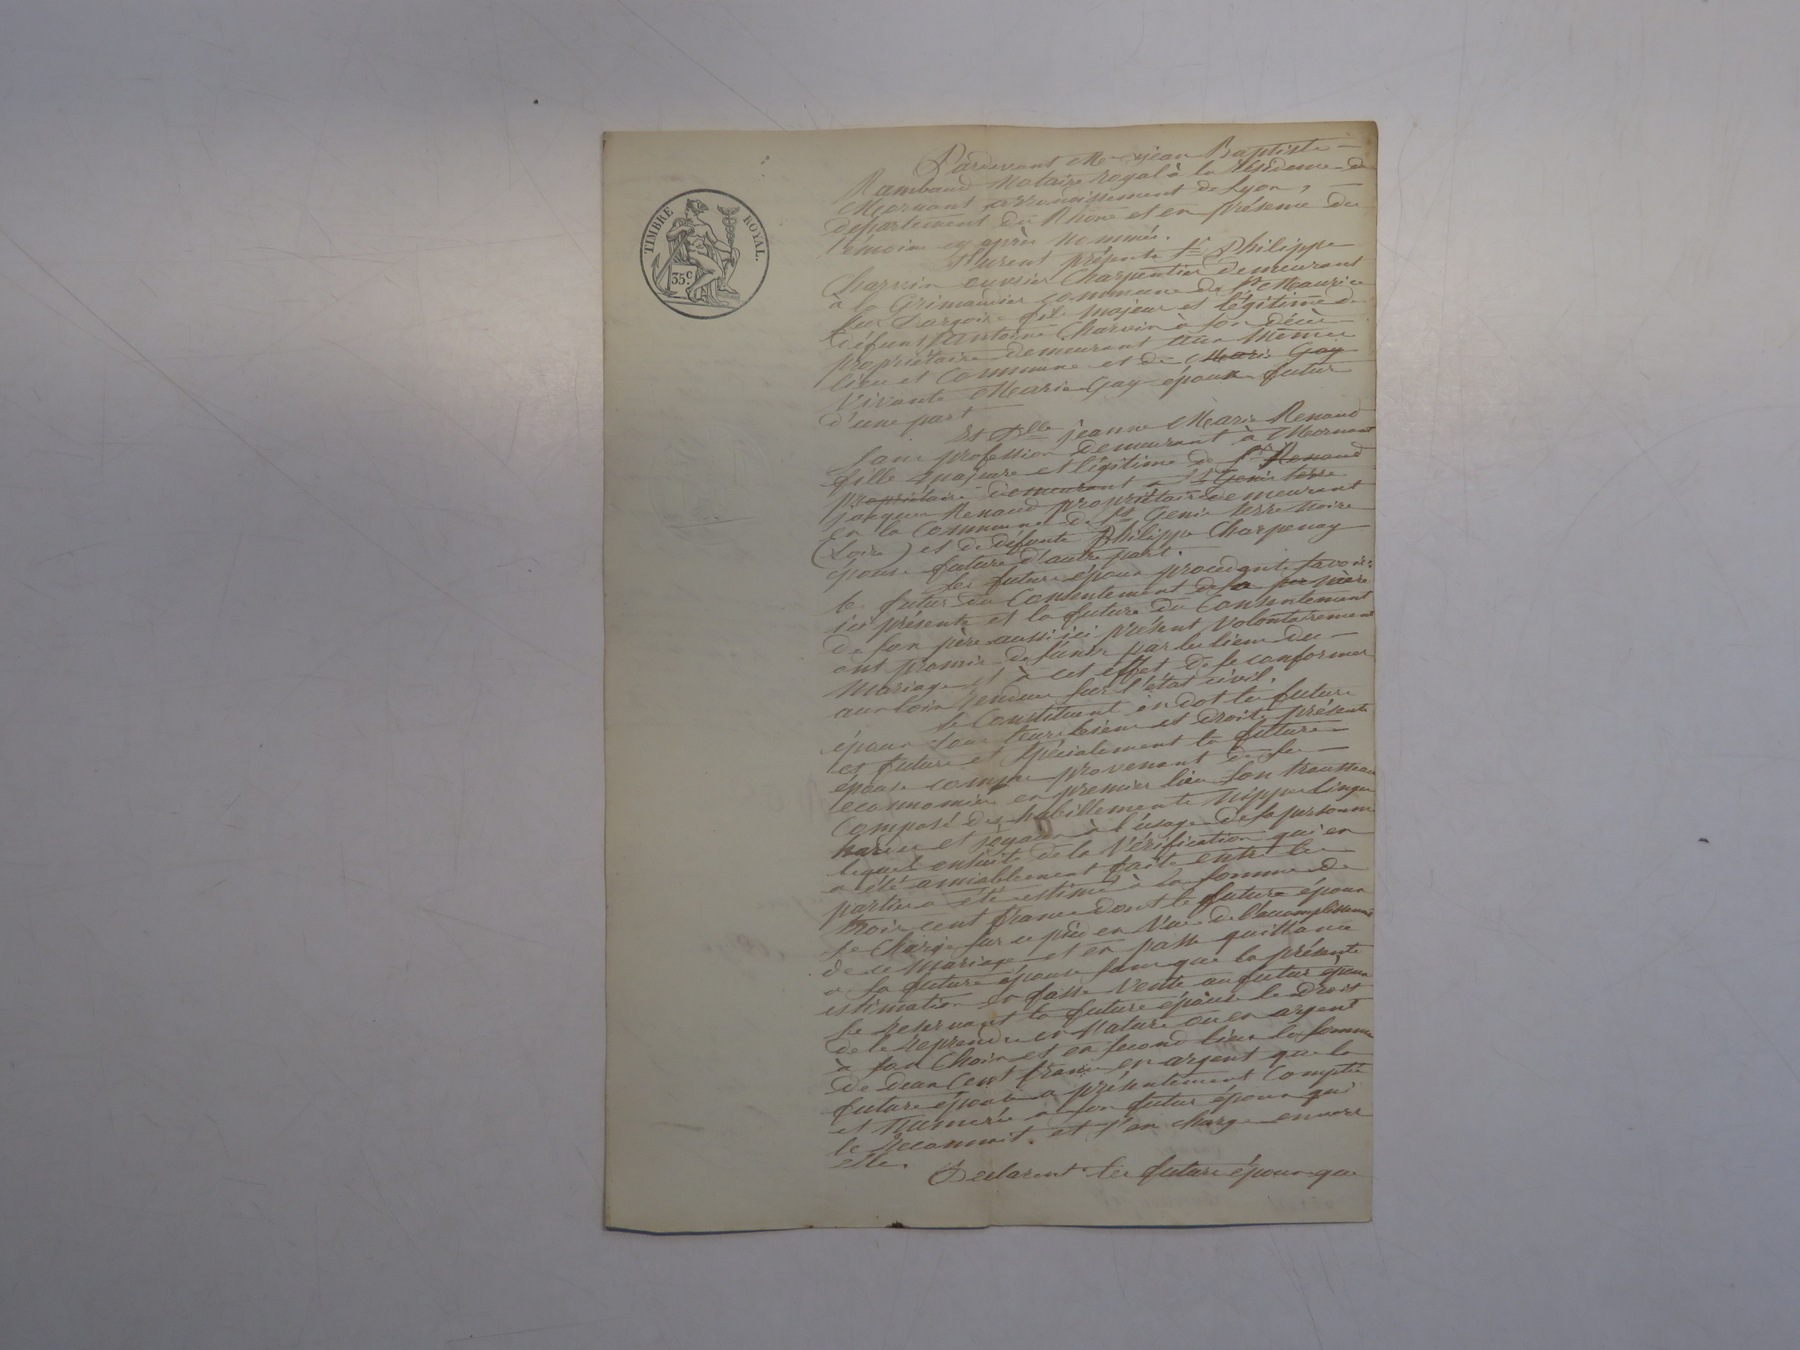 TIMBRE ROYAL.
35c.
Pardevant Me jean Baptiste
Rambaud Notaire royal à la résidence de
Mornant arrondissement de Lyon,
département du Rhône et en présence du
témoin cy après nommés.
Furent présents Sr. Philippe
Charvin ouvrier Charpentier demeurant
à la Grimaudier commune de St Maurice
sur Dargoire fils majeur et légitime de
défunt Antoine Charvin à son décès
propriétaire demeurant aux mêmes
lieu et Commune et de Marie Gay
vivante Marie Gay époux futur
d'une part
Et Dlle jeanne Marie Renaud
sans profession demeurant à Mornant
fille Majeure et légitime de Sr Renaud
propriétaire demeurant à St Genis terre
jacques Renaud propriétaire demeurant
en la Commune de St Genis terre noire
(Loire) et de défunte Philippe Charpenay
épouse future d'autre part.
Les futurs époux procédant savoir:
le futur du Consentement de sa mère
ici présente et la future du Consentement
de son père aussi ici présent volontairement
ont promis de s'unir par les liens du
Mariage et à cet effet de se conformer
aux lois rendues sur l'état civil.
Se Constituent en dot les futurs
époux tous leurs biens et droits présents
et futurs et spécialement la future
épouse comme provenant de ses
économies en premier lieu son trousseau
Composé des habillements Nippes Linges
hardes et joyaux à l'usage de sa personne
lequel ensuite de la Vérification qui en
a été amiablement faite entre les
parties a été estimé à la somme de
trois cent francs dont le futur époux
se Charge sur ce pied en Vue de l'accomplissement
de ce Mariage et en passe quittance
a sa future épouse sans que la présente
estimation en fasse Vente au futur époux
se réservant la future épouse le Droit
de le reprendre en Nature ou en argent
à son Choix et en second lieu la somme
de deux Cent francs en argent que la
future épouse a présentement Compté
et Numéré à son futur époux qui
le reconnait. et s'en charge envers
elle.
Déclarent les futurs époux que